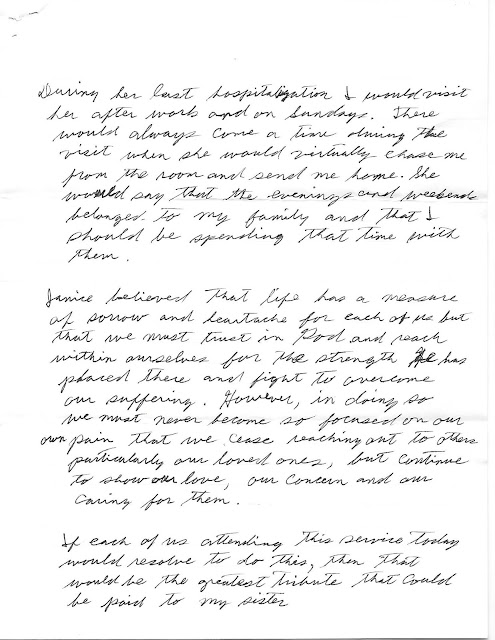 During her last hospitalization I would visit
her after work and on Sundays. There
would always come a time during the
visit when she would virtually chase me
from the room and send me home. She
would say that the evenings and weekends
belonged to my family and that I
should be spending that time with
them.
Janice believed that life has a measure
of sorrow and heartache for each of us but
that we must trust in God and reach
within ourselves for the strength He has
placed there and fight to overcome
our suffering. However, in doing so
we must never become so focused on our
own pain that we cease reaching out to others
particularly our loved ones, but continue
to show our love, our concern and our
caring for them.
If each of us attending this service today
would resolve to do this, then that
would be the greatest tribute that could
be paid to my sister